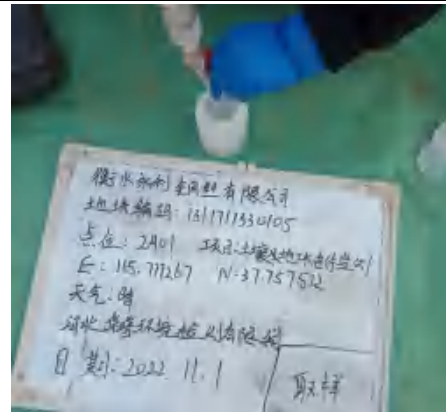 衡水永利有限公司
地块编码: 1311711330105
点位: 2A01 项目: 土壤及地下水自行监测
E: 115.777267 N: 37.757572
天气: 晴
河北环境检测有限公司
日期: 2022.11.1
取样